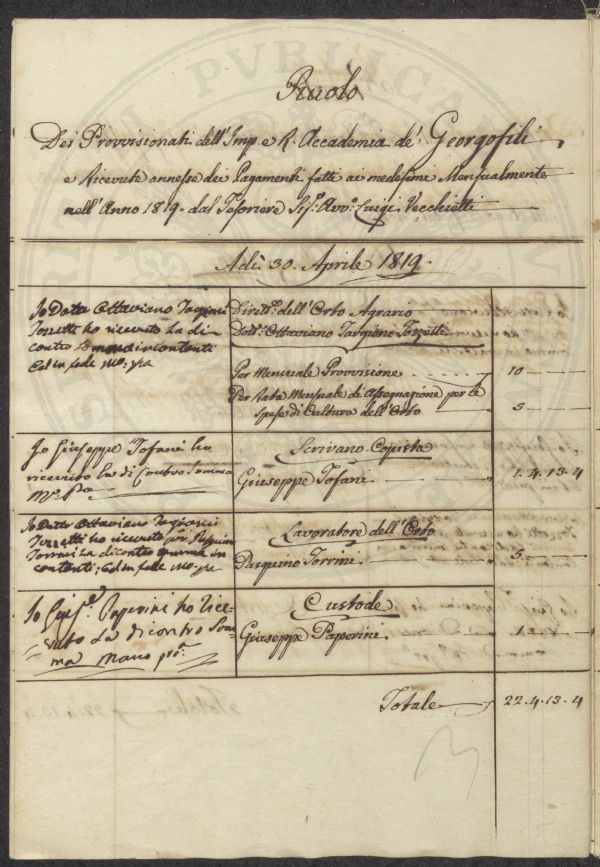 Ruolo
Dei Provvisionati dell'Imp. e R. Accademia de' Georgofili,
e Ricevute annesse dei Pagamenti fatti ai medesimi Mensualmente
nell'Anno 1819. dal Tesoriere Sig. Avv. Luigi Vecchietti
Adì 30. Aprile 1819.
Io Dott. Ottaviano Targioni
Tozzetti ho ricevuto la di
contro in contanti
Ed in fede Mo. pa
Dirett. dell'Orto Agrario
Dott. Ottaviano Targioni Tozzetti
Per Mensuale Provvisione 10
Per Rata Mensuale di Assegnazione per le
Spese di Cultura dell'Orto 5
Io Giuseppe Tofani ho
ricevuto la di Contro Somma
Mo. Pa
Scrivano Copista
Giuseppe Tofani 1.4.13.4
Io Dott. Ottaviano Targioni
Tozzetti ho ricevuto per
Torrini la di contro somma in
contanti; Ed in fede Mo. pa
Lavoratore dell'Orto
Pasquino Torrini 5
Io Gius. Paperini ho Rice-
vuto La di contro Som-
ma Mano pro.
Custode
Giuseppe Paperini 1
Totale 22.4.13.4
PVBLICAE